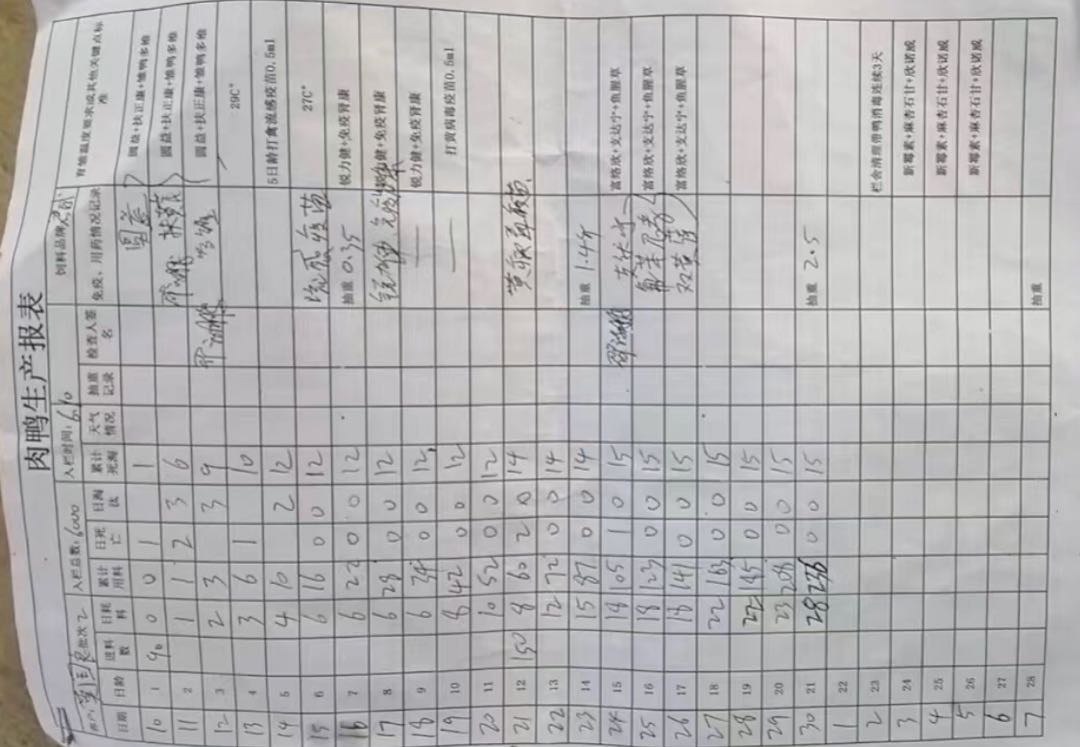 肉鸭生产报表
批次 2 入栏总数:6000 入栏时间:6.10 饲料品牌
日期 日龄 进料数 日耗料 累计用料 日死亡 日淘汰 累计死淘 天气情况 抽重记录 检查人签名 免疫、用药情况记录 育雏温度要求或其他关键点标准
10 1 90 0 0 1 1 圆益 圆益+扶正康+雏鸭多维
11 2 1 1 2 3 6 圆益+扶正康+雏鸭多维
12 3 2 3 3 9 圆益+扶正康+雏鸭多维
13 4 3 6 1 10 29C°
14 5 4 10 2 12 5日龄打禽流感疫苗0.5ml
15 6 6 16 0 0 12 流感疫苗 27C°
16 7 6 22 0 0 12 抽重 0.35 锐力健+免疫肾康
17 8 6 28 0 0 12 锐力健+免疫肾康
18 9 6 34 0 0 12 锐力健+免疫肾康
19 10 8 42 0 0 12 打黄病毒疫苗0.5ml
20 11 10 52 0 0 12
21 12 150 8 60 2 0 14
22 13 12 72 0 0 14
23 14 15 87 0 0 14 抽重 1.44
24 15 18 105 1 0 15 支达宁 富络欣+支达宁+鱼腥草
25 16 18 123 0 0 15 富络欣+支达宁+鱼腥草
26 17 18 141 0 0 15 富络欣+支达宁+鱼腥草
27 18 22 163 0 0 15
28 19 22 185 0 0 15
29 20 23 208 0 0 15
30 21 28 236 0 0 15 抽重 2.5
1 22
2 23 栏舍清理带鸭消毒连续3天
3 24 新霉素+麻杏石甘+欣诺威
4 25 新霉素+麻杏石甘+欣诺威
5 26 新霉素+麻杏石甘+欣诺威
6 27
7 28 抽重